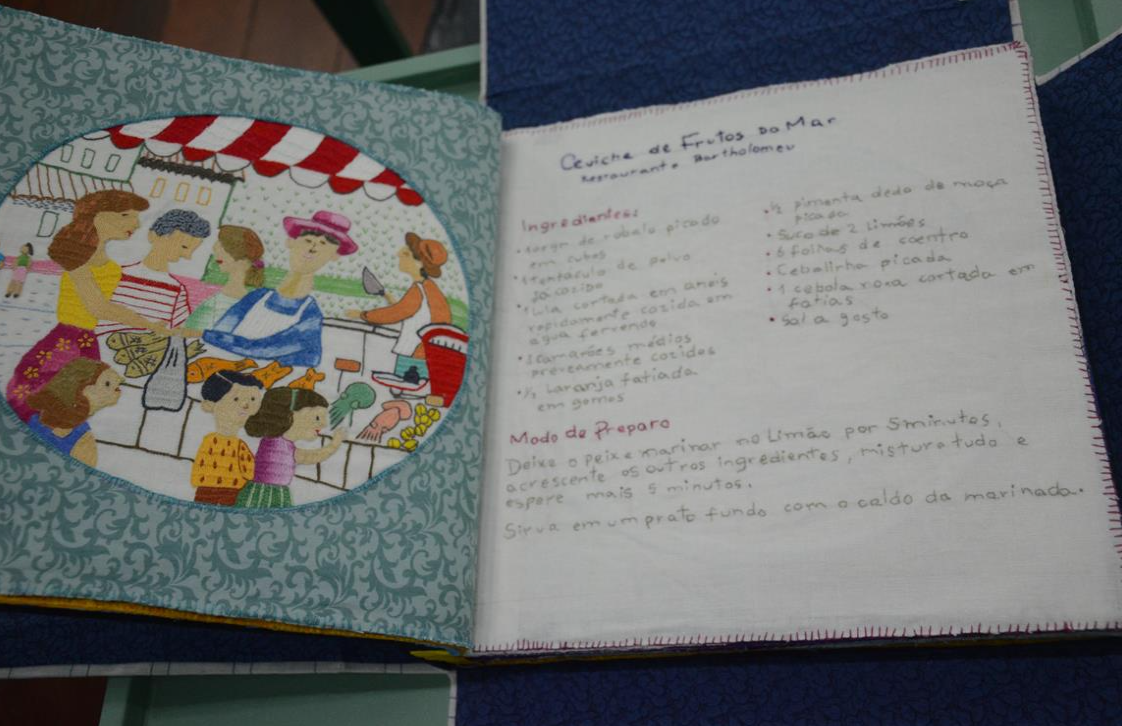 Ceviche de Frutos Do Mar
Restaurante Bartholomeu
Ingredientes:
de robalo picado
em cubos
• 1 tentaculo de polvo
já cozido
• 1 Lula cortada em aneis
rapidamente cozida em
agua fervendo
• 3 camarões médios
previamente cozidos
• ½ Laranja fatiada
em gomos
• ½ pimenta dedo de moça
picada
• Suco de 2 Limões
• 6 folhas de coentro
• Cebolinha picada
• 1 cebola roxa cortada em
fatias
• Sal a gosto
Modo de Preparo
Deixe o peixe marinar no Limão por 5 minutos,
acrescente os outros ingredientes, mistura tudo e
espere mais 5 minutos.
Sirva em um prato fundo com o caldo da marinada.